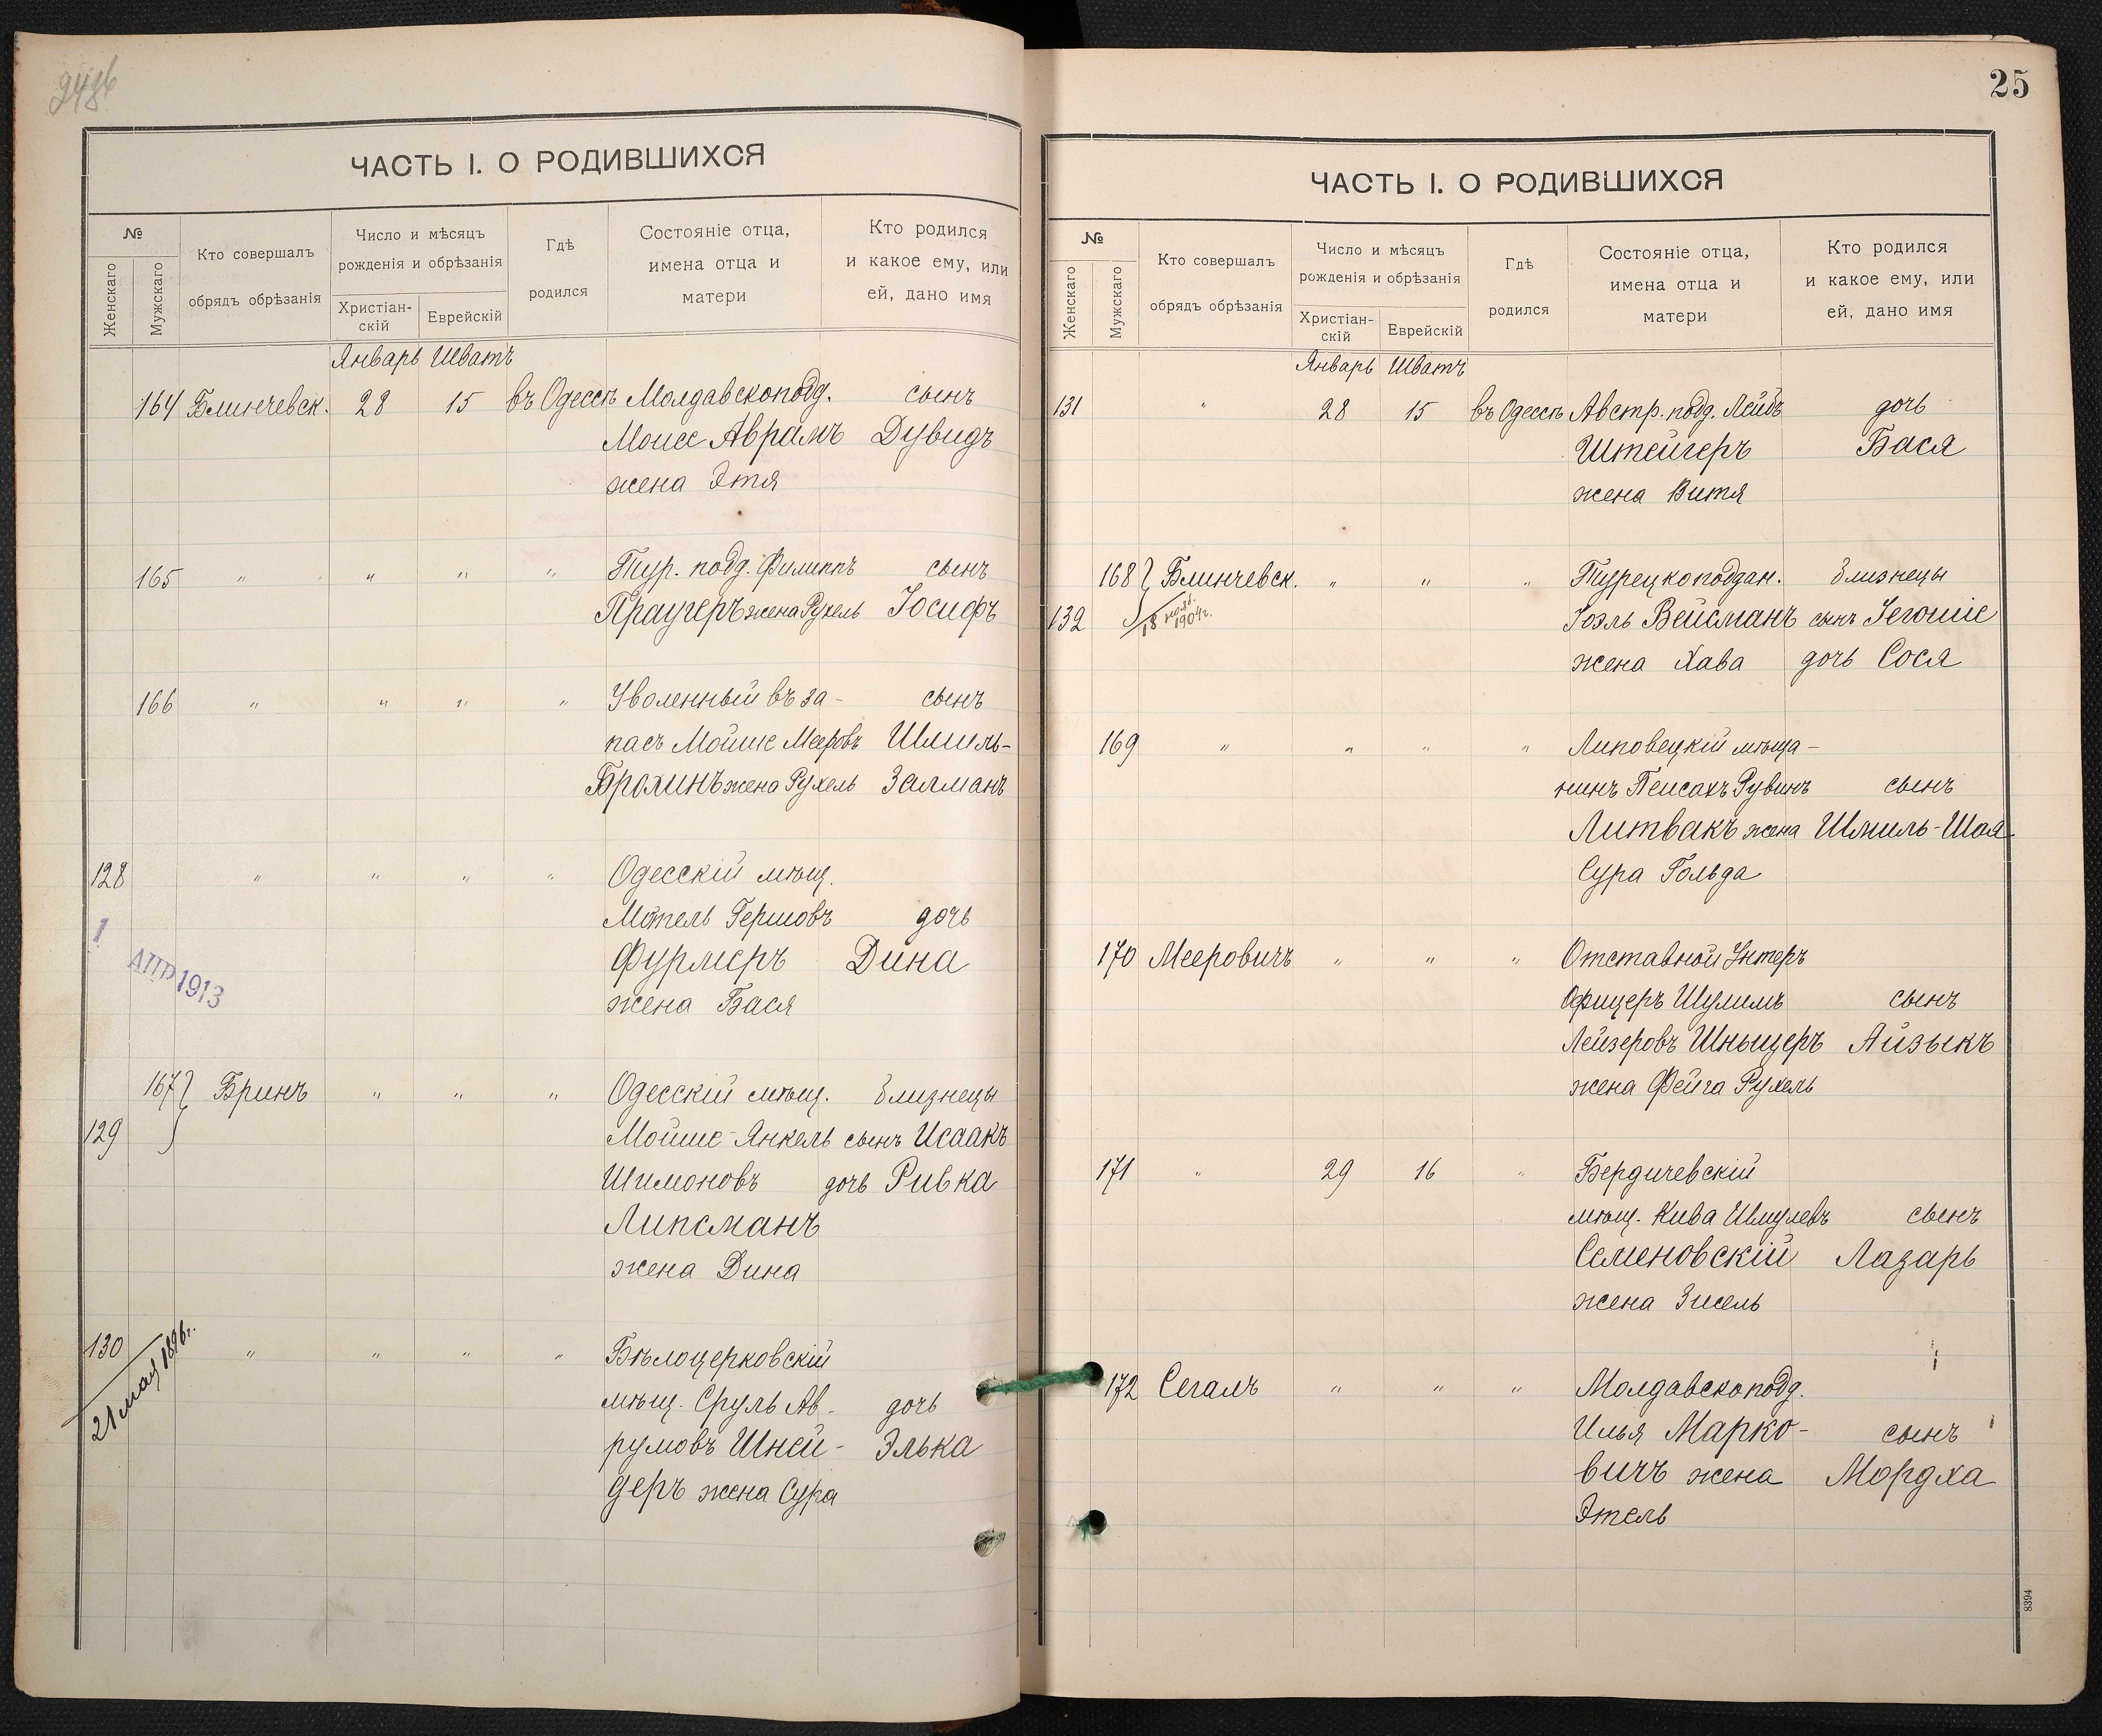 ЧАСТЬ I. О РОДИВШИХСЯ
№
Женскаго
Мужскаго
Кто совершалъ
обрядъ обрѣзанія
Число и мѣсяцъ
рожденія и обрѣзанія
Христіан-
скій
Еврейскій
Гдѣ
родился
Состояніе отца,
имена отца и
матери
Кто родился
и какое ему, или
ей, дано имя
Январь Шватъ
164 Блинчевск. 28 15 въ Одессѣ Молдавскоподд. сынъ
Моисе Аврамъ Дувидъ
жена Этя
165 " " " " Тур. подд. Филиппъ сынъ
Праугеръ жена Рухель Іосифъ
166 " " " " Уволенный въ за- сынъ
пасъ Мойше Мееровъ Шмиль-
Брохинъ жена Рухель Залманъ
128 " " " " Одесскій мѣщ.
Мотель Гершовъ дочь
Фурмеръ Дина
жена Бася
1 АПР 1913
167 Бринъ " " " Одесскій мѣщ. близнецы
129 Мойше-Янкель сынъ Исаакъ
Шимоновъ дочь Ривка
Липсманъ
жена Дина
130 " " " " Бѣлоцерковскій
21 мая 1896г.
мѣщ. Сруль Ав- дочь
румовъ Шней- Элька
деръ жена Сура
25
ЧАСТЬ I. О РОДИВШИХСЯ
№
Женскаго
Мужскаго
Кто совершалъ
обрядъ обрѣзанія
Число и мѣсяцъ
рожденія и обрѣзанія
Христіан-
скій
Еврейскій
Гдѣ
родился
Состояніе отца,
имена отца и
матери
Кто родился
и какое ему, или
ей, дано имя
Январь Шватъ
131 " 28 15 въ Одессѣ Австр. подд. Лейбъ дочь
Штейгеръ Бася
жена Витя
168 Блинчевск. " " " Турецкоподдан. близнецы
132 18 1904г. Іоэль Вейсманъ сынъ Іегошіе
жена Хава дочь Сося
169 " " " " Липовецкій мѣща-
нинъ Пейсахъ Рувинъ сынъ
Литвакъ жена Шмиль-Шая
Сура Гольда
170 Мееровичъ " " " Отставной Унтеръ
Офицеръ Шулимъ сынъ
Лейзеровъ Шныцеръ Айзыкъ
жена Фейга Рухель
171 " 29 16 " Бердичевскій
мѣщ. Кива Шмулевъ сынъ
Семеновскій Лазарь
жена Зисель
172 Сегалъ " " " Молдавскоподд.
Илья Марко- сынъ
вичъ жена Мордха
Этель
8394